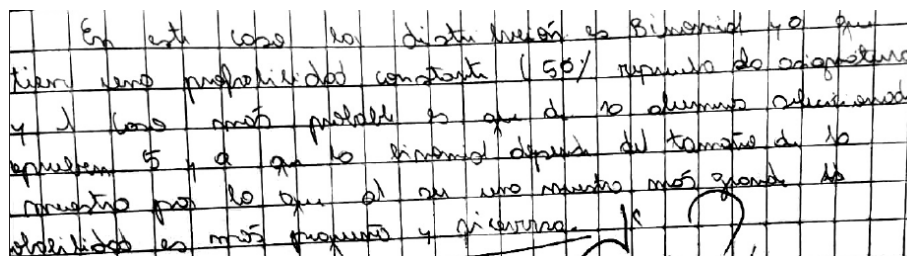 En este caso la distribución es Binomial ya que
tiene una probabilidad constante (50% aprueba la asignatura
y el caso más probable es que de 10 alumnos seleccionad
aprueben 5, ya que la binomial depende del tamaño de la
muestra por lo que al ser una muestra más grande la
obabilidad es más pequeña y viceversa.